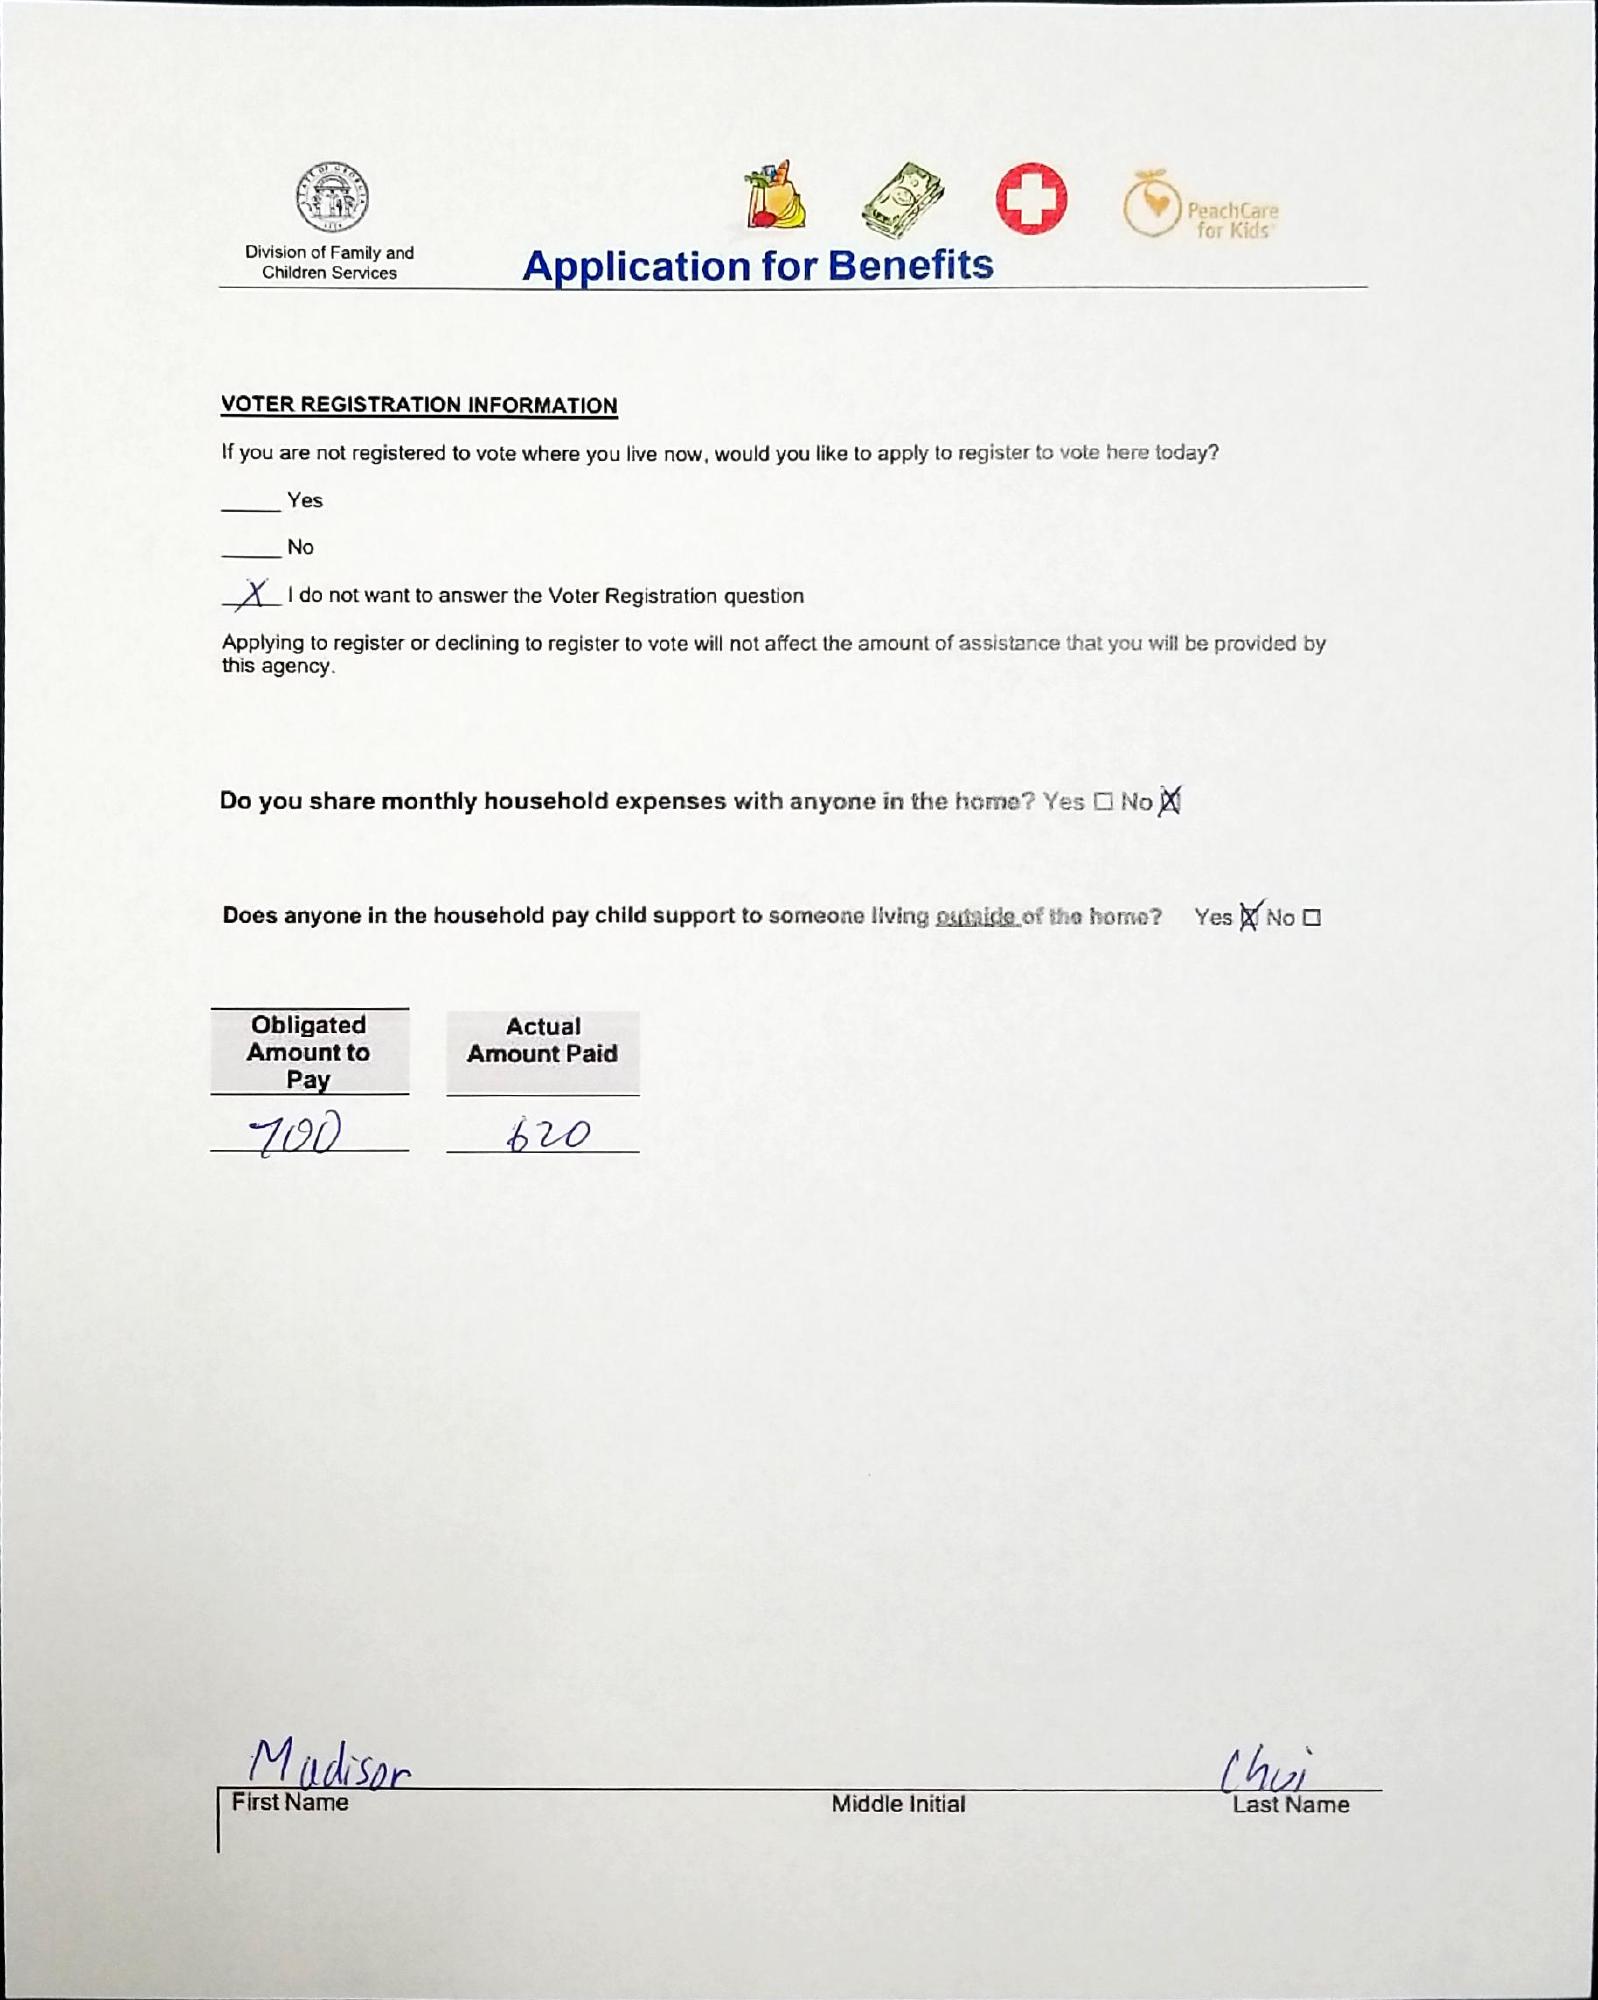 STATE OF GEORGIA
Division of Family and
Children Services
PeachCare
for Kids
Application for Benefits
VOTER REGISTRATION INFORMATION
If you are not registered to vote where you live now, would you like to apply to register to vote here today?
_____ Yes
_____ No
__X__ I do not want to answer the Voter Registration question
Applying to register or declining to register to vote will not affect the amount of assistance that you will be provided by
this agency.
Do you share monthly household expenses with anyone in the home? Yes ☐ No ☒
Does anyone in the household pay child support to someone living outside of the home? Yes ☒ No ☐
Obligated
Amount to
Pay
700
Actual
Amount Paid
620
Madison Choi
First Name Middle Initial Last Name